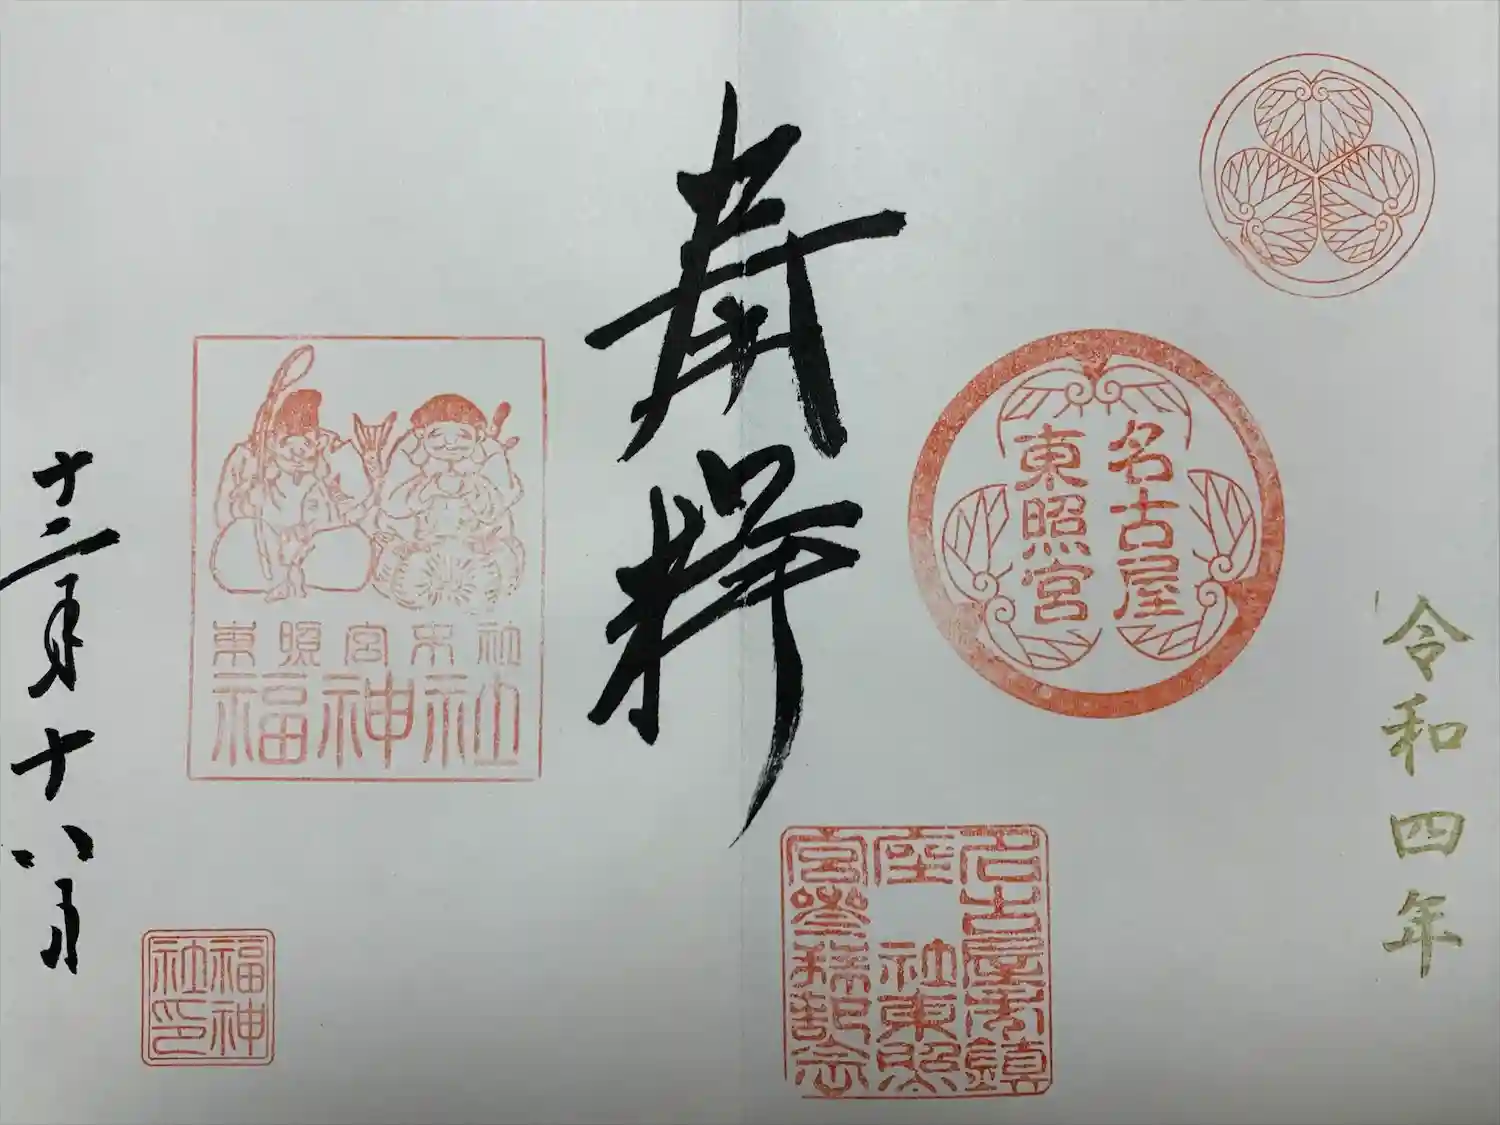 令和四年
名古屋
東照宮
奉拝
名古屋御鎮
座 社東照
宮参拝記念
東照宮末社
福神社
十二月十八日
福神
社印